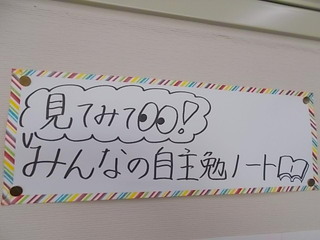 見てみて!
みんなの自主勉ノート